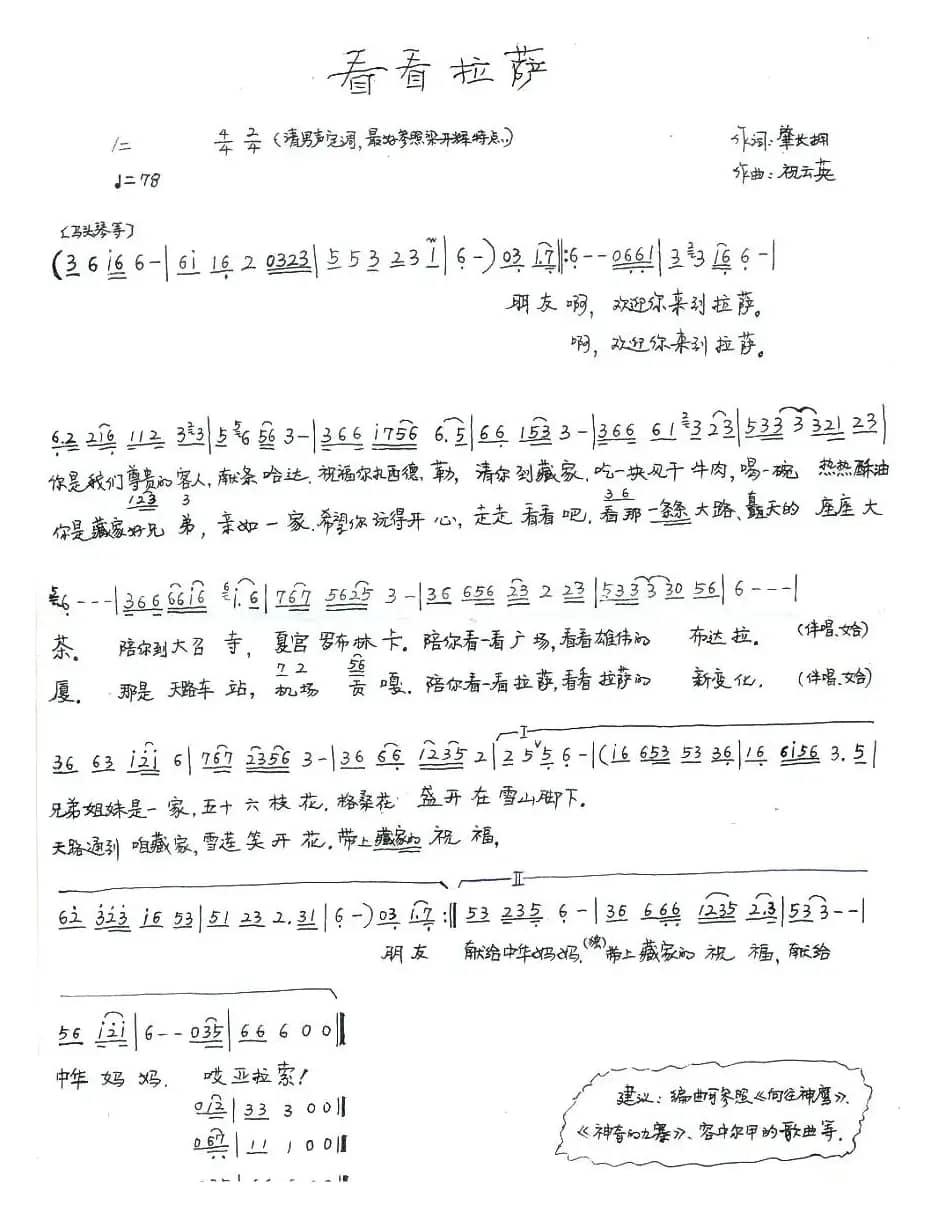 看看拉萨
1= 4/4 2/4 (请男声定词,最好参照梁开辉特点)
作词:肇长拥
♩=78
作曲:祝云英
(马头琴等)
(3 6 i6 6-|6i 16 2 0323|5 5 3 23 1|6-)03 1.7‖:6--0661|3 3 16 6-|
朋友啊,欢迎你来到拉萨。
啊,欢迎你来到拉萨。
6.2 216 112 33|5 6 56 3-|366 1756 6.5|66 153 3-|366 61 323|533 3 321 23|
你是我们尊贵的客人,献条哈达.祝福你扎西德,勒,请你到藏家.吃一块风干牛肉,喝一碗 热热酥油
123 3 36
你是藏家好兄弟,亲如一家.希望你玩得开心,走走看看吧.看那一条条大路、矗天的座座大
6---|366 6616 1.6|767 5625 3-|36 656 23 2 23|533 3 30 56|6---|
茶. 陪你到大召寺, 夏宫罗布林卡.陪你看一看广场,看看雄伟的 布达拉. (伴唱、女合)
72 56
厦. 那是天路车站, 机场 贡嘎.陪你看一看拉萨,看看拉萨的 新变化. (伴唱、女合)
I
36 63 i2i 6|767 2356 3-|36 66 1235 2|2 5 5 6-|(i6 653 53 36|16 6i56 3.5|
兄弟姐妹是一家,五十六枝花.格桑花 盛开在雪山脚下.
天路通到咱藏家,雪莲笑开花.带上藏家的祝福,
II
62 323 i6 53|51 23 2.31|6-)03 1.7:‖53 235 6-|36 666 1235 2.3|533--|
朋友 献给中华妈妈.(独)带上藏家的祝福,献给
56 i2i|6--035|66 6 0 0‖
中华妈妈. 哎亚拉索!
012|33 3 0 0‖
067|11 1 0 0‖
建议:编曲可参照《向往神鹰》、
《神奇的九寨》、容中尔甲的歌曲等.